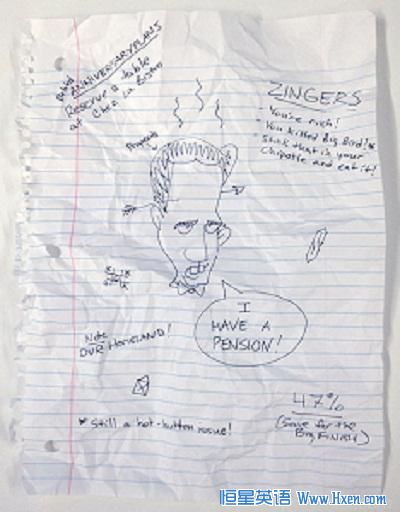 ANNIVERSARY PLANS
RESERVE a table
at Chez La
ZINGERS
- You're rich!
- You killed Big Bird!
- Stick that in your
Chipotle and eat it!
I
HAVE A
PENSION!
Note
DVR HOMELAND!
47%
(Save for the
Big FINISH)
* Still a hot-button issue!
恒星英语 Www.Hxen.com